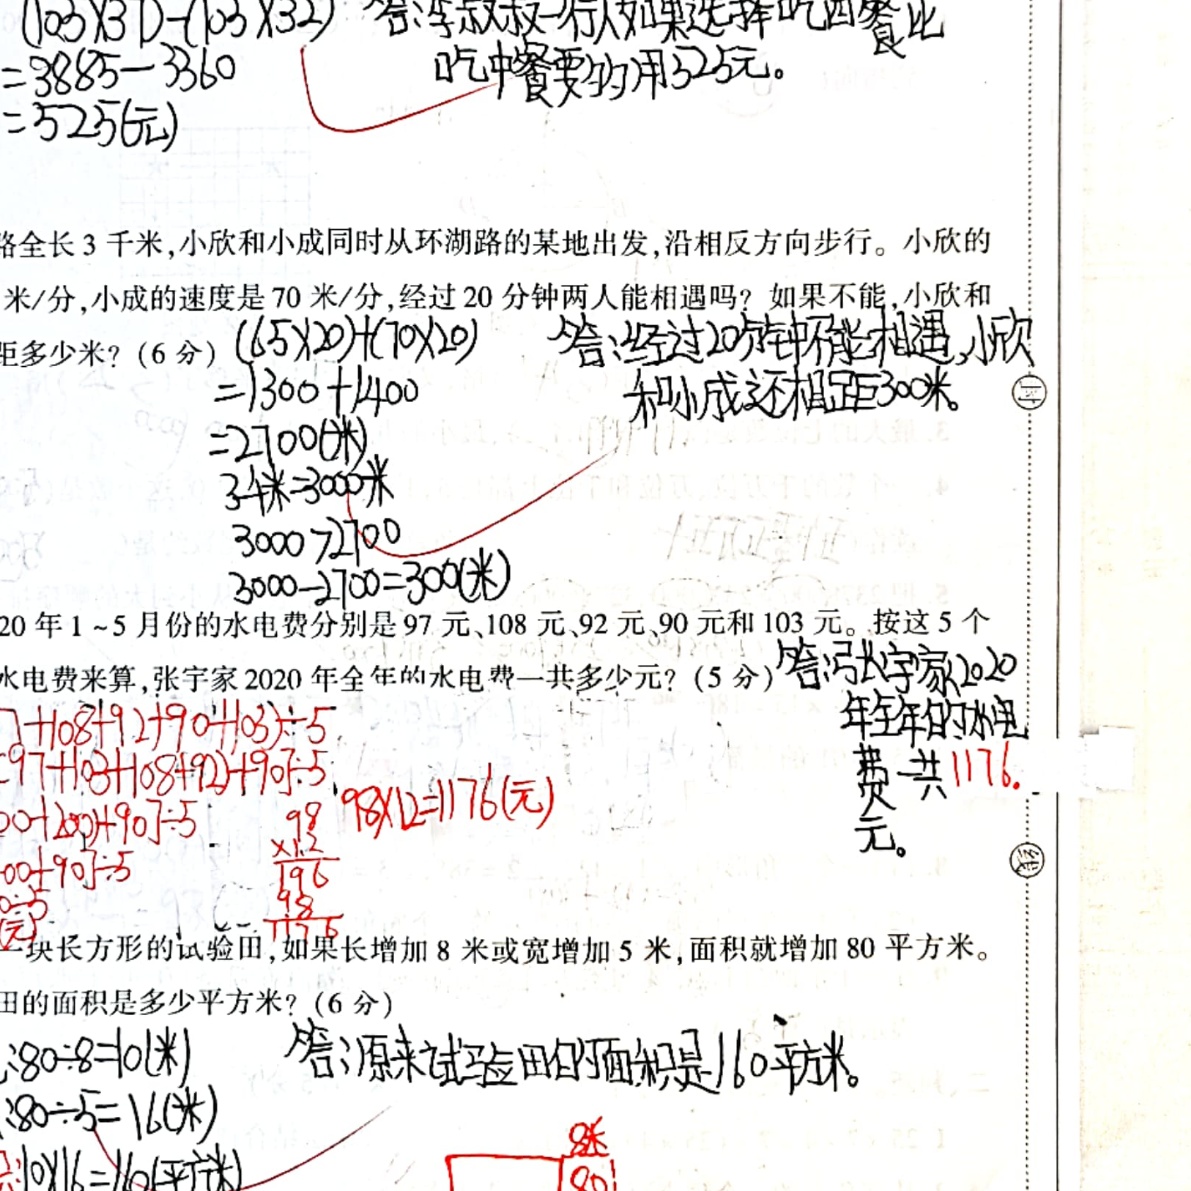 (105×37)-(105×32)
答:李叔叔一行人如果选择吃西餐比
=3885-3360
吃中餐要多用525元。
=525(元)
路全长3千米,小欣和小成同时从环湖路的某地出发,沿相反方向步行。小欣的
米/分,小成的速度是70米/分,经过20分钟两人能相遇吗?如果不能,小欣和
距多少米?(6分)
(65×20)+(70×20)
=1300+1400
=2700(米)
3千米=3000米
3000>2700
3000-2700=300(米)
答:经过20分钟不能相遇,小欣
和小成还相距300米。
20年1~5月份的水电费分别是97元、108元、92元、90元和103元。按这5个
水电费来算,张宇家2020年全年的水电费一共多少元?(5分)
答:张宇家2020
年全年的水电
费一共1176.
元。
+108+92+90+103)÷5
=97+103+108+92)+90]÷5
00+200)+90]÷5
00+90]÷5
0÷5
(元)
98
×12
196
98
1176
98×12=1176(元)
一块长方形的试验田,如果长增加8米或宽增加5米,面积就增加80平方米。
田的面积是多少平方米?(6分)
:80÷8=10(米)
:80÷5=16(米)
:10×16=160(平方米)
答:原来试验田的面积是160平方米。
8米
80
线